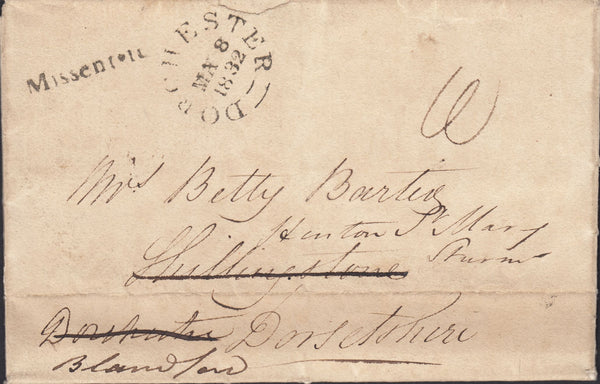 Missent to
DORCHESTER
MY 8
1832
6
Mrs Betty Barter
Hinton St Mary
Shillingstone Sturm
Dorchester Dorsetshire
Blandford